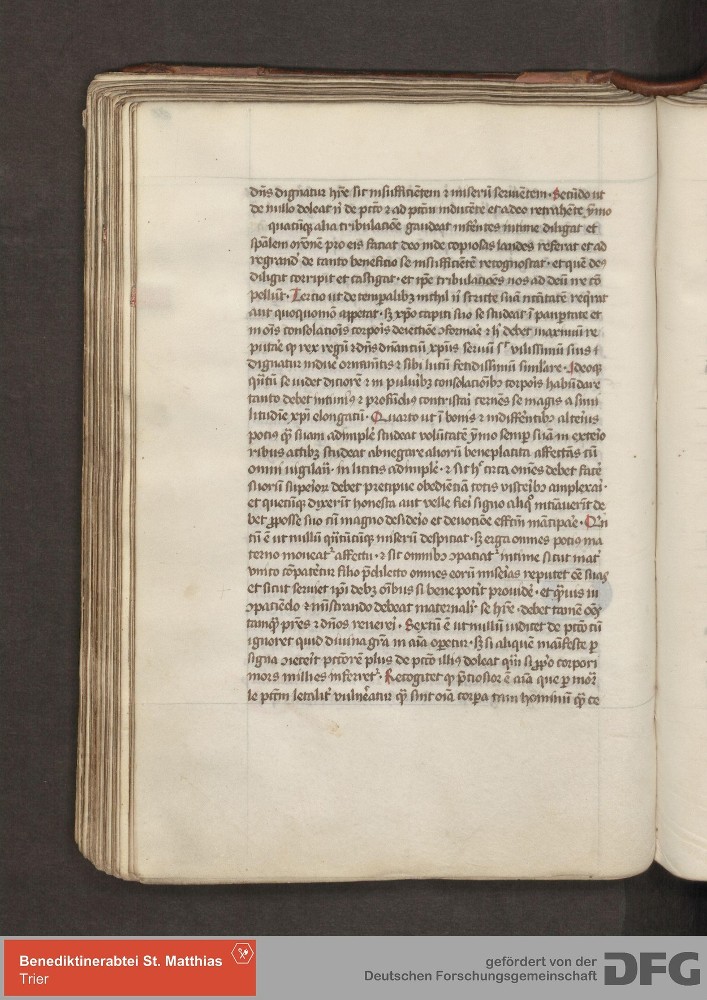 dn̄s dignatur hr̄e sit insufficiētem ⁊ miserū seruiētem · Secūdo ut
de nullo doleat n̄ de pctō ⁊ ad pctm̄ inducēte et a deo retrahēte ymo
quacūq alia tribulacōe gaudeat inferētes intime diligat et
spālem orōnē pro eis faciat deo inde copiosas laudes referat et ad
regrand' de tanto beneficio se insufficiētē recognoscat · et quē deꝯ
diligit corripit et castigat · et ip̄e tribulacōes nos ad deū ire cō
pellūt · Tercio ut de temp̄alibꝫ nichil n̄ stricte suā nc̄itatē reqrat
aut quoquomō appetat · sꝫ xp̄o capiti suo se studeat ī paup̄tate et
in oīs consolacōis corporis
putare ꝙ rex regū ⁊ dn̄s dn̄anciū xp̄us seruū vilissimū sius
dignatur induē ⁊ sibi lutū fetidissimū similare · Ideoq
quātū se videt diciorē ⁊ in pluribꝫ consolacōibꝫ corporis habūdare
tanto debet intimiꝰ ⁊ profūdiꝰ contristari cernēs se magis a simi
litudīe xp̄i elongatū · Quarto ut ī bonis ⁊ indifferētibꝫ alteriꝰ
potiꝰ q̄ʒ suam adimplē studeat volūtatē ymo semp suā in exterio
ribus actibꝫ studeat abnegare aliorū beneplacita affectās cū
omni vigilan̄ in licitis adimplē · ⁊ sit h' circa omēs debet facē
suorū superiorꝝ debet precipue obediēciā totis viscerib' amplexari ·
et quecūqꝫ dixerīt honesta aut velle fieri signo aliq̊ inuerīt de
bet pposse suo cū magno desid'io et deuocōe effectū mācipare · Quī
tū ē ut nullū quātūcūqꝫ miserū despiciat · sꝫ erga omnes potiꝰ ma
terno moueatʳ affectu · ⁊ sit omnibꝫ ꝯpaciatʳ intime sicut matʳ
vnico cōpatetur filio p̄dilecto omnes eorū miserias reputet eē suas
et sicut seruiet ip̄i debꝫ oībus si bene poterit prouidē · et quis in
ꝯpaciēdo ⁊ mīstrando debeat maternaliʳ se hr̄e · debet tamē oēs
tamqʒ pr̄es ⁊ dn̄os reuereri · Sextū ē ut nullū iudicet de pctō cū
ignoret quid diuina grā in aīa operetur · sꝫ si aliquē māifeste p
signa ꝯieterit pctōrē plus de pctō illiꝰ doleat quā si pprio corpori
mors millies inferretʳ · Recogitet ꝙ p̄ciosior ē aīa que p mor
le pctm̄ letalitʳ vulneratur q̄ʒ sint oīa corpora tam hominū q̄ʒ ce
Benediktinerabtei St. Matthias
Trier
gefördert von der
Deutschen Forschungsgemeinschaft
DFG